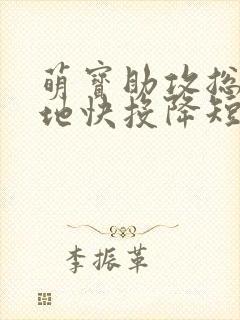 萌宝助攻总
地快投降短
李振革